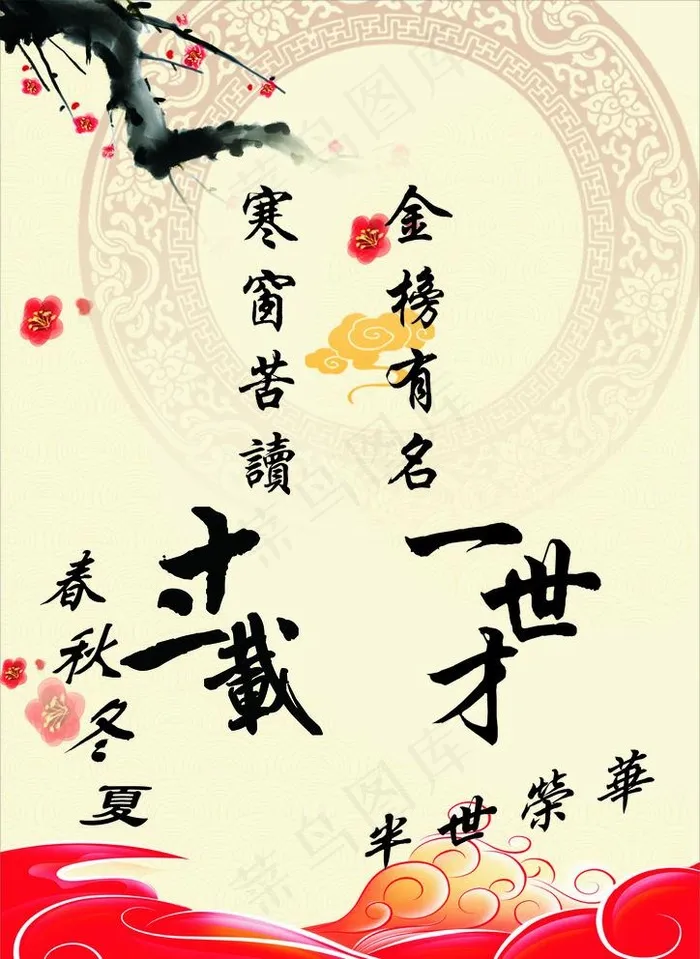 寒窗苦讀
金榜有名
十二載
一世才
春秋冬夏
半世榮華
菜鸟图库